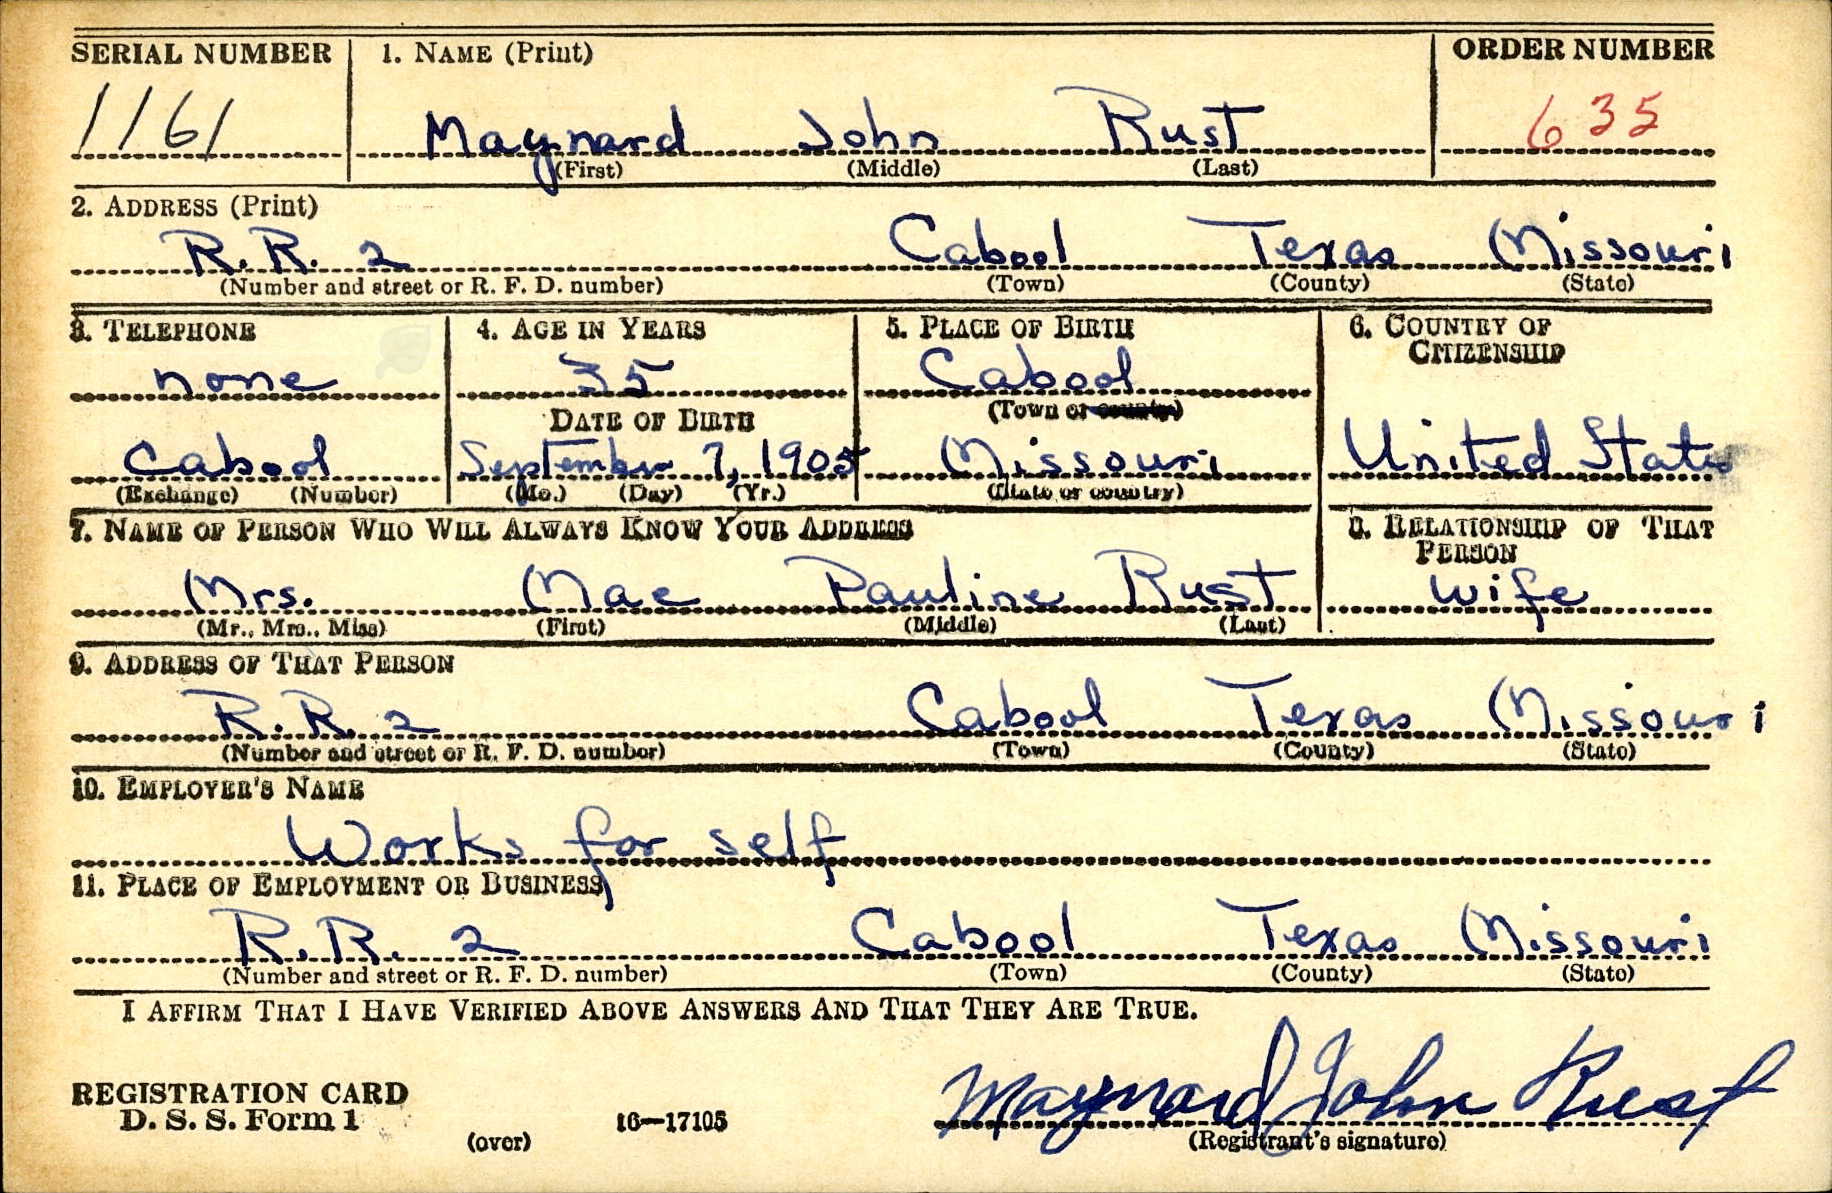 SERIAL NUMBER 1. NAME (Print) ORDER NUMBER
1161 Maynard John Rust 635
(First) (Middle) (Last)
2. ADDRESS (Print)
R. R. 2 Cabool Texas Missouri
(Number and street or R. F. D. number) (Town) (County) (State)
3. TELEPHONE 4. AGE IN YEARS 5. PLACE OF BIRTH 6. COUNTRY OF
CITIZENSHIP
none 35 Cabool
DATE OF BIRTH (Town or county)
Cabool September 7, 1905 Missouri United States
(Exchange) (Number) (Mo.) (Day) (Yr.) (State or country)
7. NAME OF PERSON WHO WILL ALWAYS KNOW YOUR ADDRESS 8. RELATIONSHIP OF THAT
PERSON
Mrs. Mae Pauline Rust wife
(Mr., Mrs., Miss) (First) (Middle) (Last)
9. ADDRESS OF THAT PERSON
R. R. 2 Cabool Texas Missouri
(Number and street or R. F. D. number) (Town) (County) (State)
10. EMPLOYER'S NAME
Works for self
11. PLACE OF EMPLOYMENT OR BUSINESS
R. R. 2 Cabool Texas Missouri
(Number and street or R. F. D. number) (Town) (County) (State)
I AFFIRM THAT I HAVE VERIFIED ABOVE ANSWERS AND THAT THEY ARE TRUE.
REGISTRATION CARD Maynard John Rust
D. S. S. Form 1 16—17105
(over) (Registrant's signature)